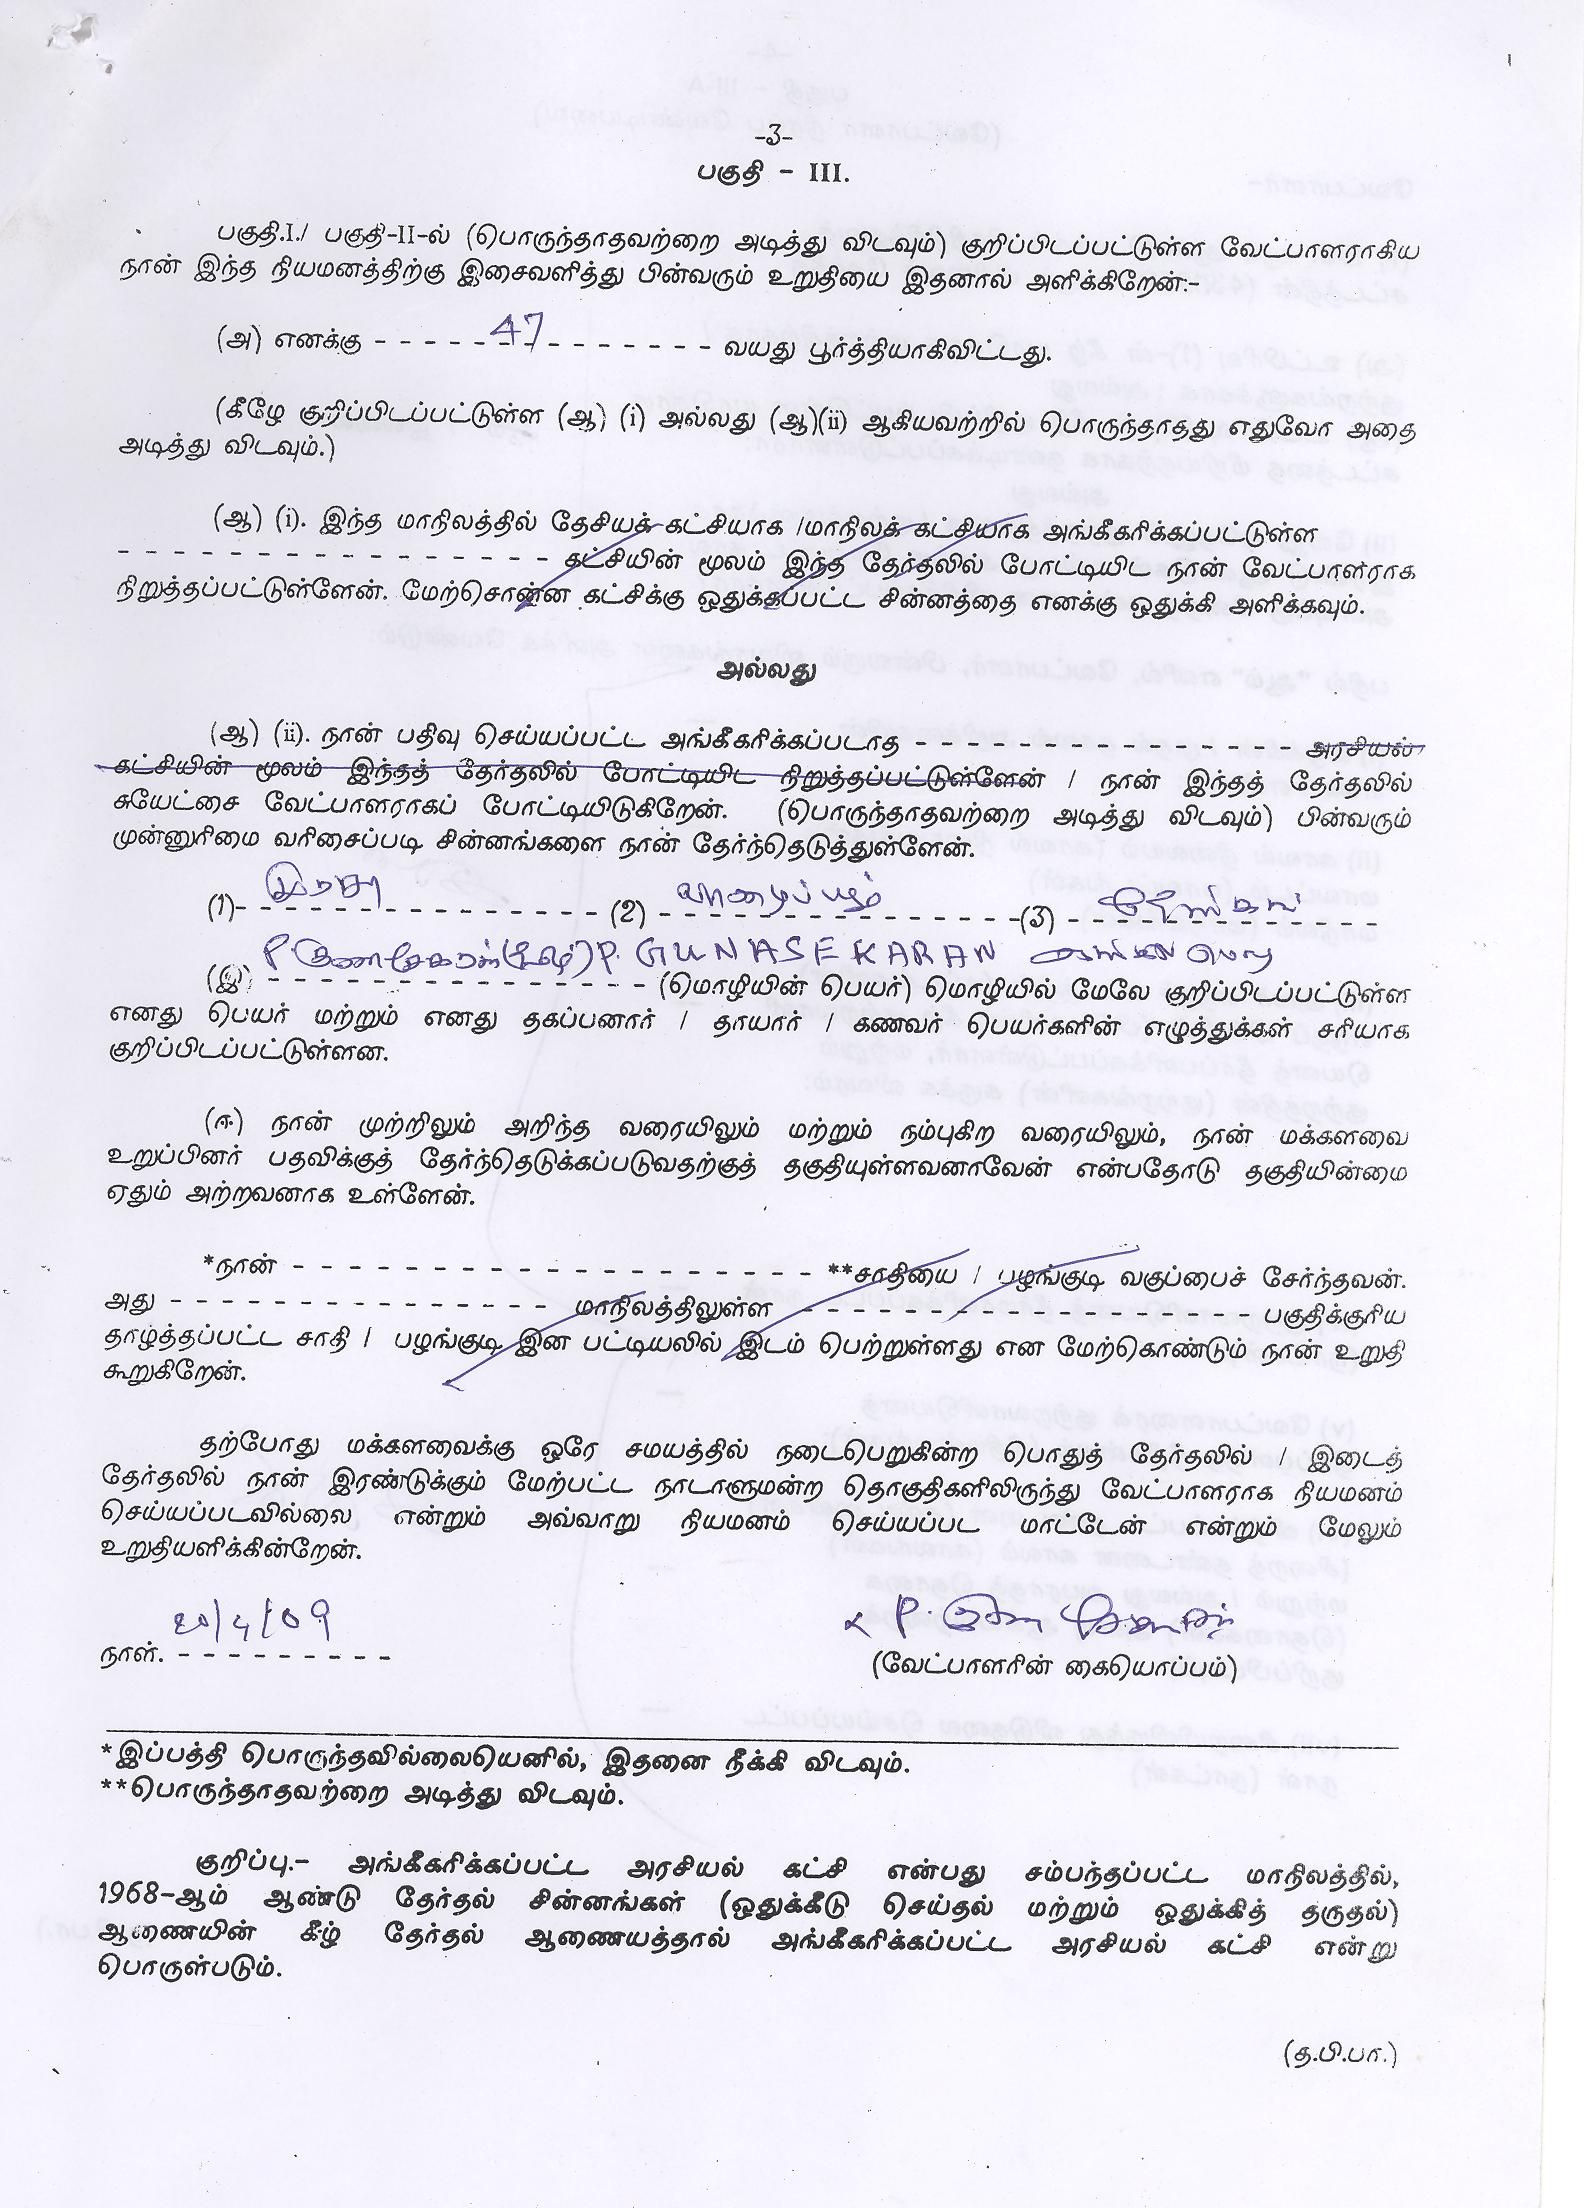 -3-
பகுதி - III.
பகுதி.I./ பகுதி-II-ல் (பொருந்தாதவற்றை அடித்து விடவும்) குறிப்பிடப்பட்டுள்ள வேட்பாளராகிய
நான் இந்த நியமனத்திற்கு இசைவளித்து பின்வரும் உறுதியை இதனால் அளிக்கிறேன்:-
(அ) எனக்கு - - - - - - 47 - - - - - - - வயது பூர்த்தியாகிவிட்டது.
(கீழே குறிப்பிடப்பட்டுள்ள (ஆ) (i) அல்லது (ஆ)(ii) ஆகியவற்றில் பொருந்தாதது எதுவோ அதை
அடித்து விடவும்.)
(ஆ) (i). இந்த மாநிலத்தில் தேசியக் கட்சியாக /மாநிலக் கட்சியாக அங்கீகரிக்கப்பட்டுள்ள
- - - - - - - - - - - - - - - - கட்சியின் மூலம் இந்த தேர்தலில் போட்டியிட நான் வேட்பாளராக
நிறுத்தப்பட்டுள்ளேன். மேற்சொன்ன கட்சிக்கு ஒதுக்கப்பட்ட சின்னத்தை எனக்கு ஒதுக்கி அளிக்கவும்.
அல்லது
(ஆ) (ii). நான் பதிவு செய்யப்பட்ட அங்கீகரிக்கப்படாத - - - - - - - - - - - - - - - - அரசியல்
கட்சியின் மூலம் இந்தத் தேர்தலில் போட்டியிட நிறுத்தப்பட்டுள்ளேன் / நான் இந்தத் தேர்தலில்
சுயேட்சை வேட்பாளராகப் போட்டியிடுகிறேன். (பொருந்தாதவற்றை அடித்து விடவும்) பின்வரும்
முன்னுரிமை வரிசைப்படி சின்னங்களை நான் தேர்ந்தெடுத்துள்ளேன்.
(1)- - - - - - - - - - - - - - - (2) - வாழைப்பழம் - - - - - - -(3) - - - - - - - - - - - -
P குணசேகரன் P. GUNASEKARAN
(இ) - - - - - - - - - - - - - - - (மொழியின் பெயர்) மொழியில் மேலே குறிப்பிடப்பட்டுள்ள
எனது பெயர் மற்றும் எனது தகப்பனார் / தாயார் / கணவர் பெயர்களின் எழுத்துக்கள் சரியாக
குறிப்பிடப்பட்டுள்ளன.
(ஈ) நான் முற்றிலும் அறிந்த வரையிலும் மற்றும் நம்புகிற வரையிலும், நான் மக்களவை
உறுப்பினர் பதவிக்குத் தேர்ந்தெடுக்கப்படுவதற்குத் தகுதியுள்ளவனாவேன் என்பதோடு தகுதியின்மை
ஏதும் அற்றவனாக உள்ளேன்.
*நான் - - - - - - - - - - - - - - - - - - - - **சாதியை / பழங்குடி வகுப்பைச் சேர்ந்தவன்.
அது - - - - - - - - - - - - - - மாநிலத்திலுள்ள - - - - - - - - - - - - - - - - - பகுதிக்குரிய
தாழ்த்தப்பட்ட சாதி / பழங்குடி இன பட்டியலில் இடம் பெற்றுள்ளது என மேற்கொண்டும் நான் உறுதி
கூறுகிறேன்.
தற்போது மக்களவைக்கு ஒரே சமயத்தில் நடைபெறுகின்ற பொதுத் தேர்தலில் / இடைத்
தேர்தலில் நான் இரண்டுக்கும் மேற்பட்ட நாடாளுமன்ற தொகுதிகளிலிருந்து வேட்பாளராக நியமனம்
செய்யப்படவில்லை என்றும் அவ்வாறு நியமனம் செய்யப்பட மாட்டேன் என்றும் மேலும்
உறுதியளிக்கின்றேன்.
P. குணசேகரன்
நாள். - - - - - - - - -
(வேட்பாளரின் கையொப்பம்)
*இப்பத்தி பொருந்தவில்லையெனில், இதனை நீக்கி விடவும்.
**பொருந்தாதவற்றை அடித்து விடவும்.
குறிப்பு.- அங்கீகரிக்கப்பட்ட அரசியல் கட்சி என்பது சம்பந்தப்பட்ட மாநிலத்தில்,
1968-ஆம் ஆண்டு தேர்தல் சின்னங்கள் (ஒதுக்கீடு செய்தல் மற்றும் ஒதுக்கித் தருதல்)
ஆணையின் கீழ் தேர்தல் ஆணையத்தால் அங்கீகரிக்கப்பட்ட அரசியல் கட்சி என்று
பொருள்படும்.
(த.பி.பா.)